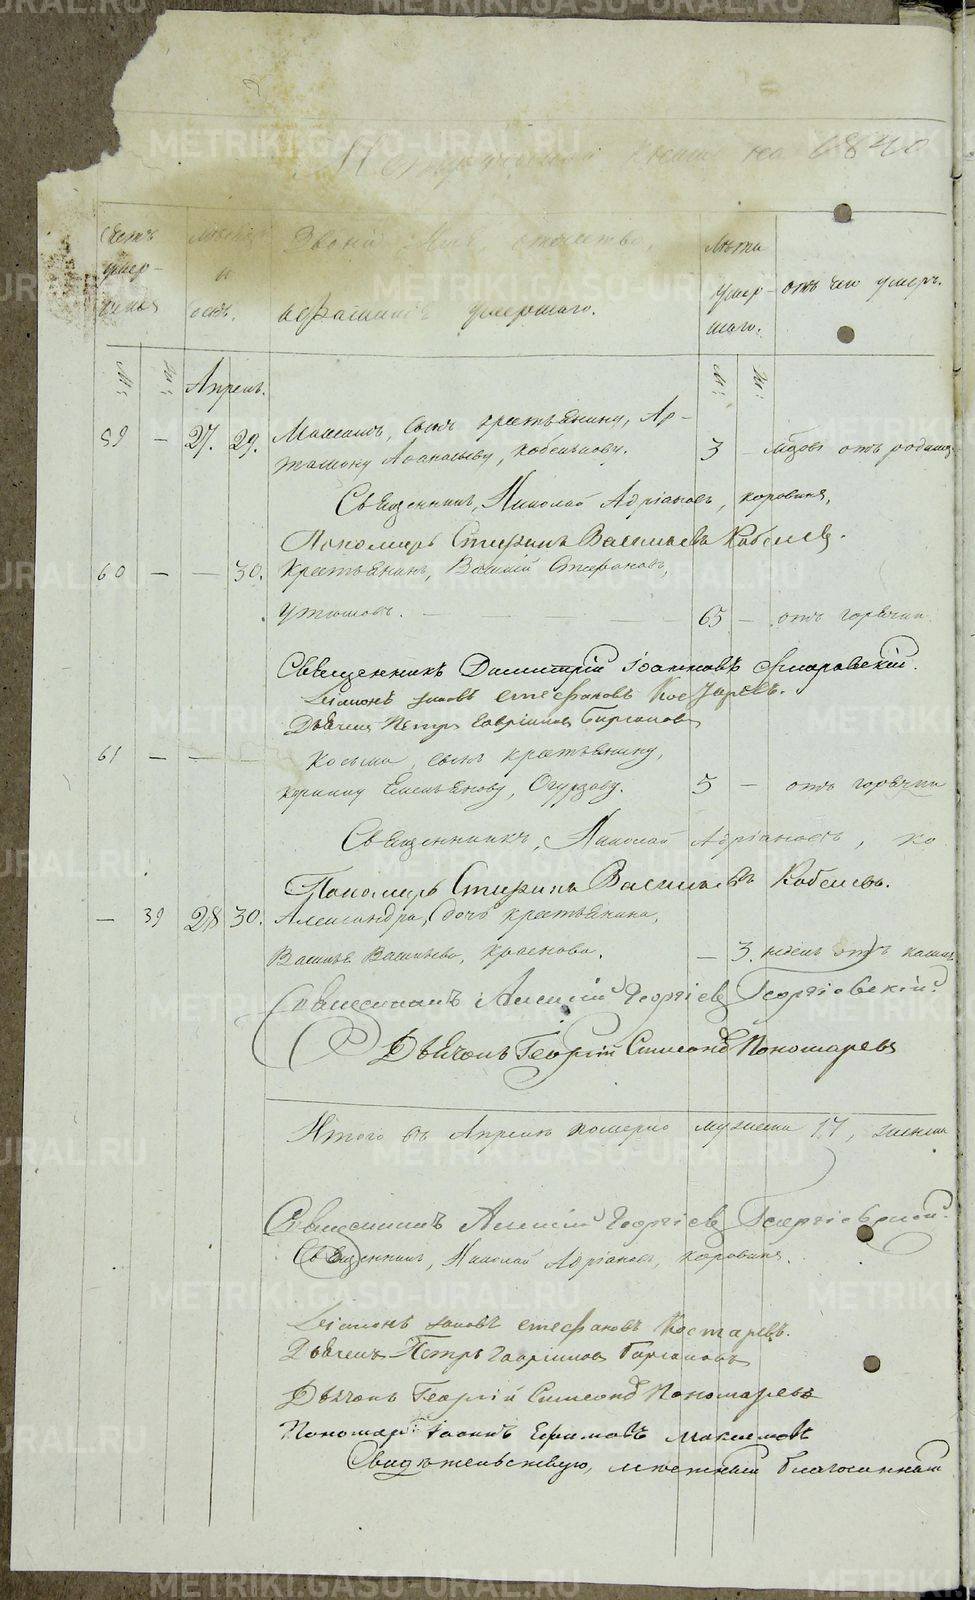 METRIKI.GASO-URAL.RU
книги на 1840
Счетъ умер- шихъ
Мѣсяцъ и день.
Званіе, Имя, отчество, и фамилія умершаго.
Лѣта умер- шаго.
отъ чего умеръ.
М: Ж: Апрель. М: Ж:
59 — 27. 29. сынъ крестьянину, Ар-
тамону Афанасьеву, Кобелькову. 3 — отъ родимца
Священникъ, Николай Адріановъ, Коровинъ,
Пономарь Стефанъ Васильевъ Кобелевъ.
60 — — 30. Крестьянинъ, Василій Стефановъ,
Утюмовъ. — 65 — отъ горячки
Священникъ Димитрій Іоанновъ Флоровскій.
Діаконъ Іаковъ Стефановъ Костаревъ.
Дьячекъ Петръ Гавріиловъ Биргановъ
61 — — — Козьма, сынъ крестьянину,
Емельянову, Огурцову. 5 — отъ горячки
Священникъ, Николай Адріановъ, Ко
Пономарь Стефанъ Васильевъ Кобелевъ.
— 39 28 30. Александра, дочь крестьянина,
Василья Васильева, Краснова. — 3. недель отъ кашля
Священникъ Алексій Георгіевъ Георгіевскій.
Дьячокъ Георгій Симеоновъ Пономаревъ
Итого въ Апрелѣ померло мужеска 17, женска
Священникъ Алексій Георгіевъ Георгіевскій.
Священникъ, Николай Адріановъ, Коровинъ.
Діаконъ Іаковъ Стефановъ Костаревъ.
Дьячекъ Петръ Гавріиловъ Биргановъ
Дьячокъ Георгій Симеоновъ Пономаревъ
Пономарь Іоаннъ Ефимовъ Максимовъ
Свидѣтельствую, мѣстный благочинный